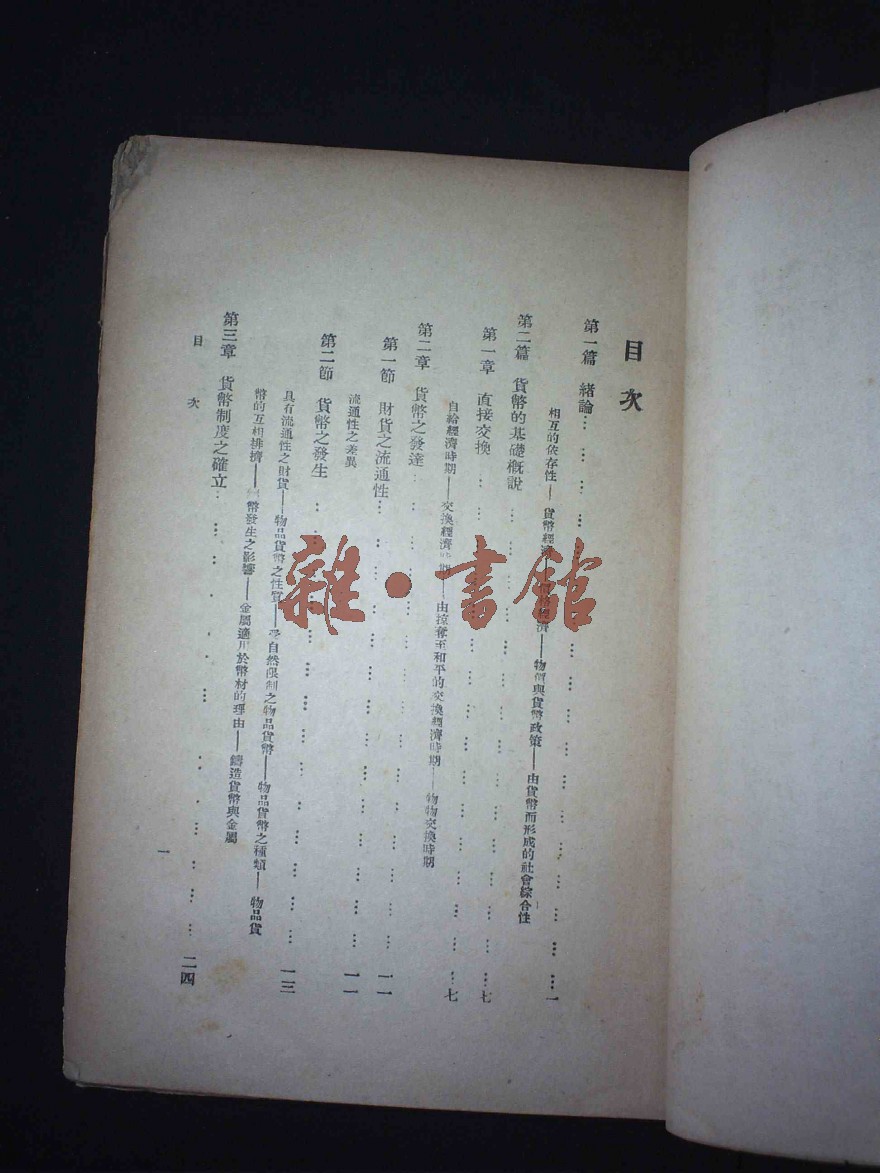 目次
第一篇 緒論……一
相互的依存性——貨幣經濟——價格經濟——物價與貨幣政策——由貨幣而形成的社會綜合性
第二篇 貨幣的基礎概說……七
第一章 直接交換……七
自給經濟時期——交換經濟時期——由掠奪至和平的交換經濟時期——物物交換時期
第二章 貨幣之發達……一一
第一節 財貨之流通性……一一
流通性之差異
第二節 貨幣之發生……一三
具有流通性之財貨——物品貨幣之性質——受自然限制之物品貨幣——物品貨幣之種類——物品貨
幣的互相排擠——幣發生之影響——金屬適用於幣材的理由——鑄造貨幣與金屬
第三章 貨幣制度之確立……二四
目次
一
雜·書館